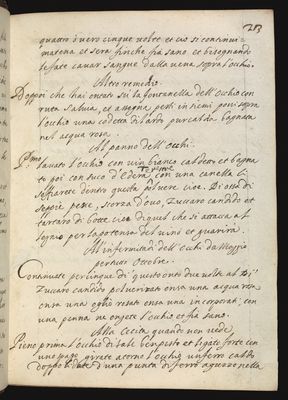 213
quattro overo cinque volte et cio si continui
matena et sera finche sia sano, et besegnando
cavar sangue dalla vena sopra l'ochio.
Altro remedio.
Doppoi che hai onta la fontanella dell'ochio con
ruta saluia, et assogna pesti insiemi poni sopra
l'ochio una codetta di lardo bagnata
nel acqua rosa.
Al panno dell'Ochi.
Pmo. lavato l'ochio con vin bianco caldeto et bagna
to poi con suco d'Edera Terestre, con una canella li
soffiarete dentro questa polvere cioe. Di osso di
sepoie pesce, scorza d'ovo, Zuccaro candido et
tartaro di botte cioe di quel che si attacca al
legno per la potenza del vino et guarira.
All'infermitadi dell'ochi da Maggio
per tuto Ottobre.
Continuate per lingue di questo onto due volte al Di
Zuccaro candido polverizato onza una acqua rosa
onza una oglio rosato onza una incorporati, con
una penna ne ongete l'ochio et sia sano.
Alla Cecita quando non vede
Pieno prima l'ochio di sale ben pesto et ligato forte con
uno pago girate atorno l'ochio un ferro caldo
doppo li date d'una punta di ferro aguzzo nella